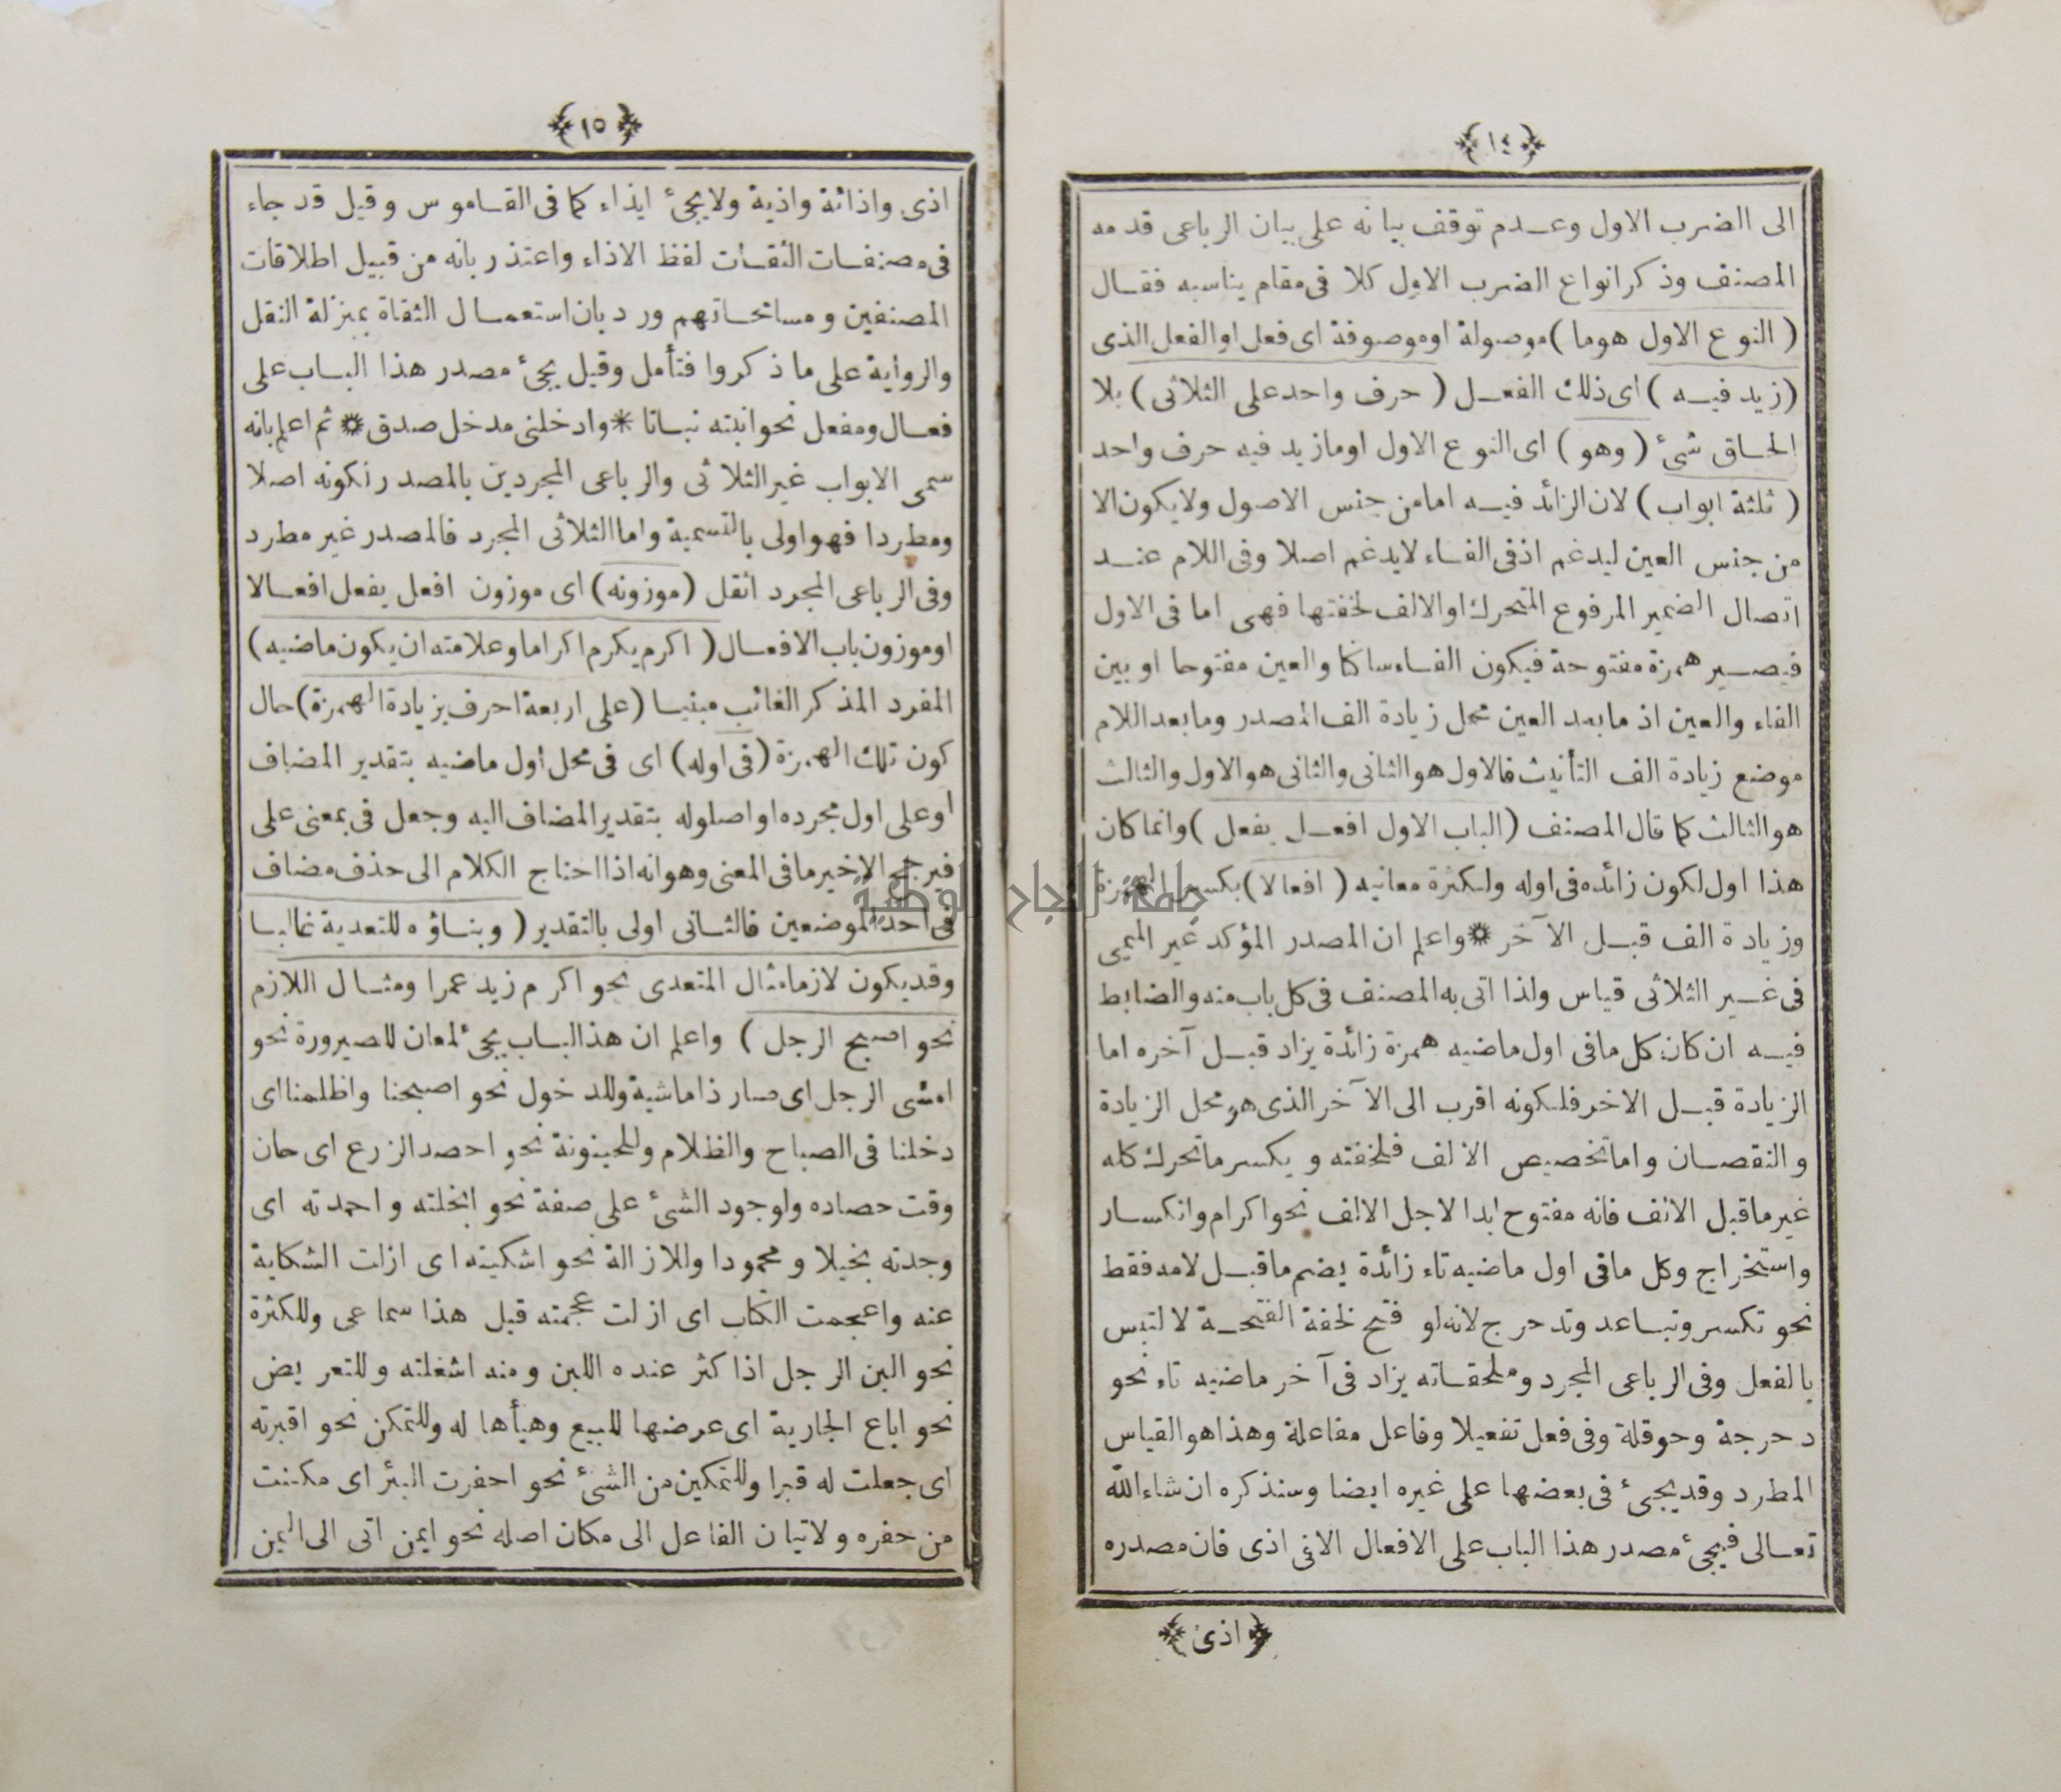 ﴿١٤﴾
الى الضرب الاول وعدم توقف بيانه على بيان الرباعى قدمه
المصنف وذكر انواع الضرب الاول كلا فى مقام يناسبه فقال
(النوع الاول هوما) موصولة اوموصوفة اى فعل اوالفعل الذى
(زيد فيه) اى ذلك الفعل (حرف واحد على الثلاثى) بلا
الحاق شئ (وهو) اى النوع الاول اومازيد فيه حرف واحد
(ثلثة ابواب) لان الزائد فيه امامن جنس الاصول ولايكون الا
من جنس العين ليدغم اذفى الفاء لايدغم اصلا وفى اللام عند
اتصال الضمير المرفوع المتحرك اوالالف لخفتها فهى اما فى الاول
فيصير همزة مفتوحة فيكون الفاء ساكنا والعين مفتوحا اوبين
الفاء والعين اذ مابعد العين محل زيادة الف المصدر ومابعد اللام
موضع زيادة الف التأنيث فالاول هو الثانى والثانى هو الاول والثالث
هو الثالث كما قال المصنف (الباب الاول افعل يفعل) وانما كان
هذا اول لكون زائده فى اوله ولكثرة معانيه (افعالا) بكسر الهمزة
وزيادة الف قبل الآخر ۞ واعلم ان المصدر المؤكد غير الميمى
فى غير الثلاثى قياس ولذا اتى به المصنف فى كل باب منه والضابط
فيه ان كان كل مافى اول ماضيه همزة زائدة يزاد قبل آخره اما
الزيادة قبل الاخر فلكونه اقرب الى الآخر الذى هو محل الزيادة
والنقصان واما تخصيص الالف فلخفته ويكسر ماتحرك كله
غير ماقبل الالف فانه مفتوح ابدا لاجل الالف نحو اكرام وانكسار
واستخراج وكل مافى اول ماضيه تاء زائدة يضم ماقبل لامه فقط
نحو تكسر وتباعد وتدحرج لانه لو فتح لخفة الفتحة لالتبس
بالفعل وفى الرباعى المجرد وملحقاته يزاد فى آخر ماضيه تاء نحو
دحرجة وحوقلة وفى فعل تفعيلا وفاعل مفاعلة وهذا هو القياس
المطرد وقد يجئ فى بعضها على غيره ايضا وسنذكره ان شاء الله
تعالى فيجئ مصدر هذا الباب على الافعال الافى اذى فان مصدره
﴿اذى﴾
﴿١٥﴾
اذى واذائة واذية ولايجئ ايذاء كما فى القاموس وقيل قد جاء
فى مصنفات الثقات لفظ الاذاء واعتذر بانه من قبيل اطلاقات
المصنفين ومسامحاتهم ورد بان استعمال الثقاة بمنزلة النقل
والرواية على ماذكروا فتأمل وقيل يجئ مصدر هذا الباب على
فعال ومفعل نحو انبته نباتا * وادخلنى مدخل صدق ۞ ثم اعلم بانه
سمى الابواب غير الثلاثى والرباعى المجردين بالمصدر لكونه اصلا
ومطردا فهو اولى بالتسمية واما الثلاثى المجرد فالمصدر غير مطرد
وفى الرباعى المجرد اثقل (موزونه) اى موزون افعل يفعل افعالا
اوموزون باب الافعال (اكرم يكرم اكراما وعلامته ان يكون ماضيه)
المفرد المذكر الغائب مبنيا (على اربعة احرف بزيادة الهمزة) حال
كون تلك الهمزة (فى اوله) اى فى محل اول ماضيه بتقدير المضاف
اوعلى اول مجرده اواصلوله بتقدير المضاف اليه وجعل فى بمعنى على
فيرجح الاخير مافى المعنى وهو انه اذا احتاج الكلام الى حذف مضاف
فى احد الموضعين فالثانى اولى بالتقدير (وبناؤه للتعدية غالبا
وقد يكون لازما مثال المتعدى نحو اكرم زيد عمرا ومثال اللازم
نحو اصبح الرجل) واعلم ان هذ الباب يجئ لمعان للصيرورة نحو
امشى الرجل اى صار ذا ماشية وللدخول نحو اصبحنا واظلمنا اى
دخلنا فى الصباح والظلام وللحينونة نحو احصد الزرع اى حان
وقت حصاده ولوجود الشئ على صفة نحو ابخلته واحمدته اى
وجدته بخيلا ومحمودا وللازالة نحو اشكيته اى ازلت الشكاية
عنه واعجمت الكتاب اى ازلت عجمته قيل هذا سماعى وللكثرة
نحو البن الرجل اذا كثر عنده اللبن ومنه اشغلته وللتعريض
نحو اباع الجارية اى عرضها للبيع وهيأها له وللتمكن نحو اقبرته
اى جعلت له قبرا وللتمكين من الشئ نحو احفرت البئر اى مكنت
من حفره ولاتيان الفاعل الى مكان اصله نحو ايمن اتى الى اليمن
جامعة النجاح الوطنية